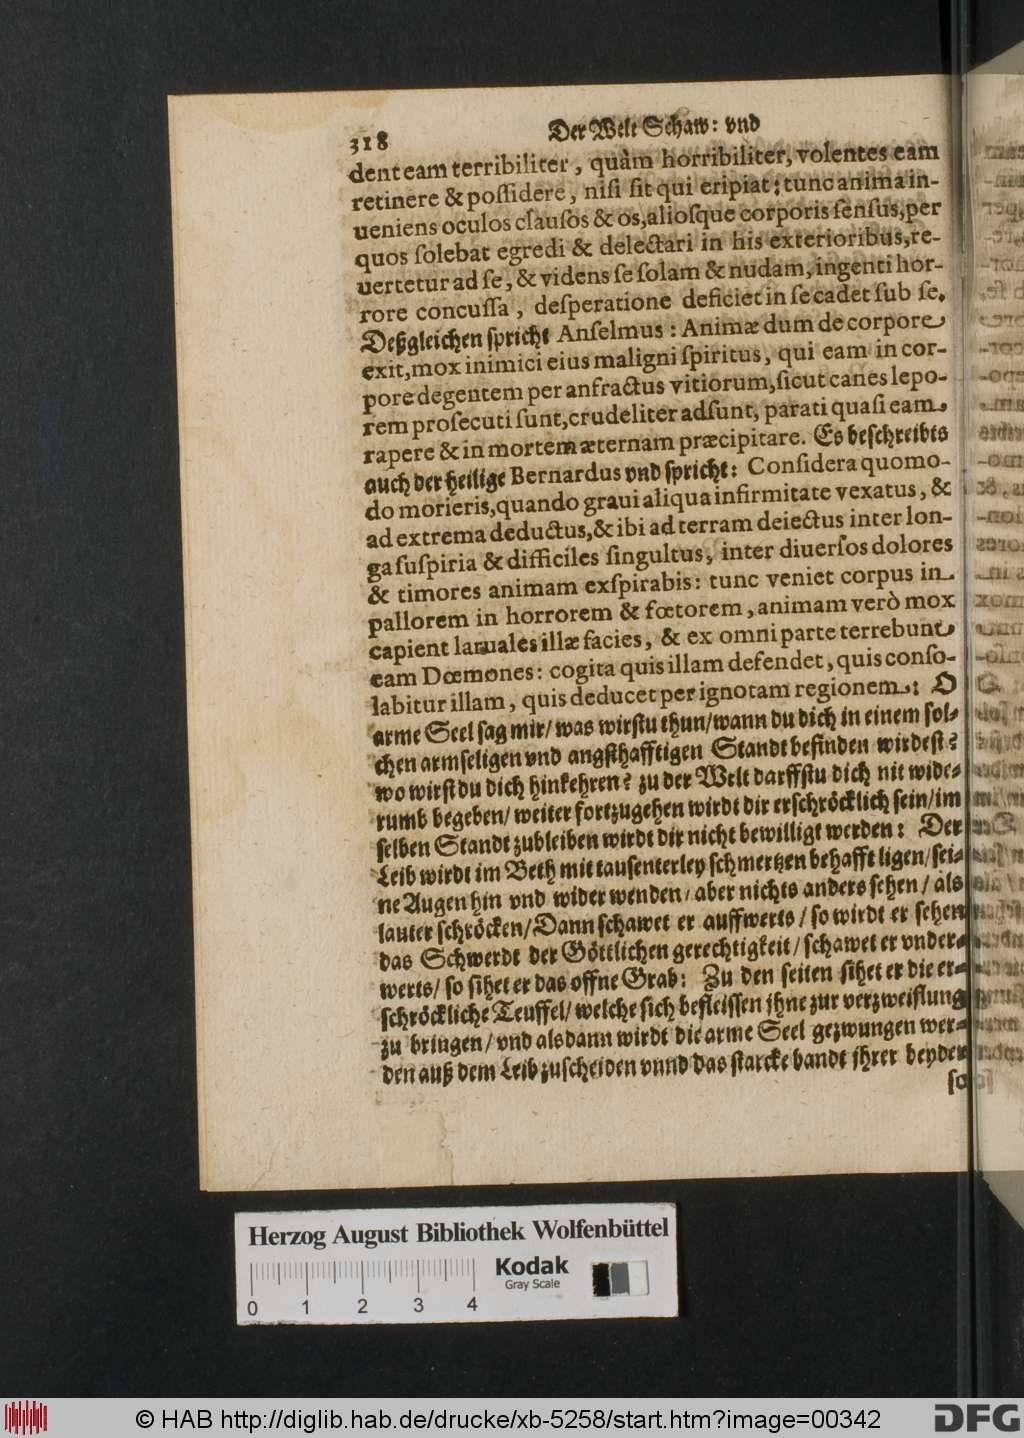 318 Der Welt Schaw: vnd
dent eam terribiliter, quàm horribiliter, volentes eam
retinere & poſſidere, niſi ſit qui eripiat: tunc anima in-
ueniens oculos clauſos & os, alioſque corporis ſenſus, per
quos ſolebat egredi & delectari in his exterioribus, re-
uertetur ad ſe, & videns ſe ſolam & nudam, ingenti hor-
rore concuſſa, deſperatione deficiet in ſe cadet ſub ſe.
Deßgleichen ſpricht Anſelmus: Animæ dum de corpore
exit, mox inimici eius maligni ſpiritus, qui eam in cor-
pore degentem per anfractus vitiorum, ſicut canes lepo-
rem proſecuti ſunt, crudeliter adſunt, parati quaſi eam
rapere & in mortem æternam præcipitare. Es beſchreibts
auch der heilige Bernardus vnd ſpricht: Conſidera quomo-
do morieris, quando graui aliqua infirmitate vexatus, &
ad extrema deductus, & ibi ad terram deiectus inter lon-
ga ſuſpiria & difficiles ſingultus, inter diuerſos dolores
& timores animam exſpirabis: tunc veniet corpus in
pallorem in horrorem & fœtorem, animam verò mox
capient laruales illæ facies, & ex omni parte terrebunt
eam Dœmones: cogita quis illam defendet, quis conſo-
labitur illam, quis deducet per ignotam regionem: O
arme Seel ſag mir/ was wirſtu thun/ wann du dich in einem ſol-
chen armſeligen vnd angſthafftigen Standt befinden wirdeſt?
wo wirſt du dich hinkehren? zu der Welt darffſtu dich nit wide-
rumb begeben/ weiter fortzugehen wirdt dir erſchröcklich ſein/ im
ſelben Standt zubleiben wirdt dir nicht bewilligt werden: Der
Leib wirdt im Beth mit tauſenterley ſchmertzen behafft ligen/ ſei-
ne Augen hin vnd wider wenden/ aber nichts anders ſehen/ als
lauter ſchröcken/ Dann ſchawet er auffwerts/ ſo wirdt er ſehen
das Schwerdt der Göttlichen gerechtigkeit/ ſchawet er vnder-
werts/ ſo ſihet er das offne Grab: Zu den ſeiten ſihet er die er-
ſchröckliche Teuffel/ welche ſich befleiſſen jhne zur verzweiflung
zu bringen/ vnd alsdann wirdt die arme Seel gezwungen wer-
den auß dem Leib zuſcheiden vnnd das ſtarcke bandt jhrer beyden
ſo
Herzog August Bibliothek Wolfenbüttel
Kodak
Gray Scale
0 1 2 3 4
© HAB http://diglib.hab.de/drucke/xb-5258/start.htm?image=00342
DFG